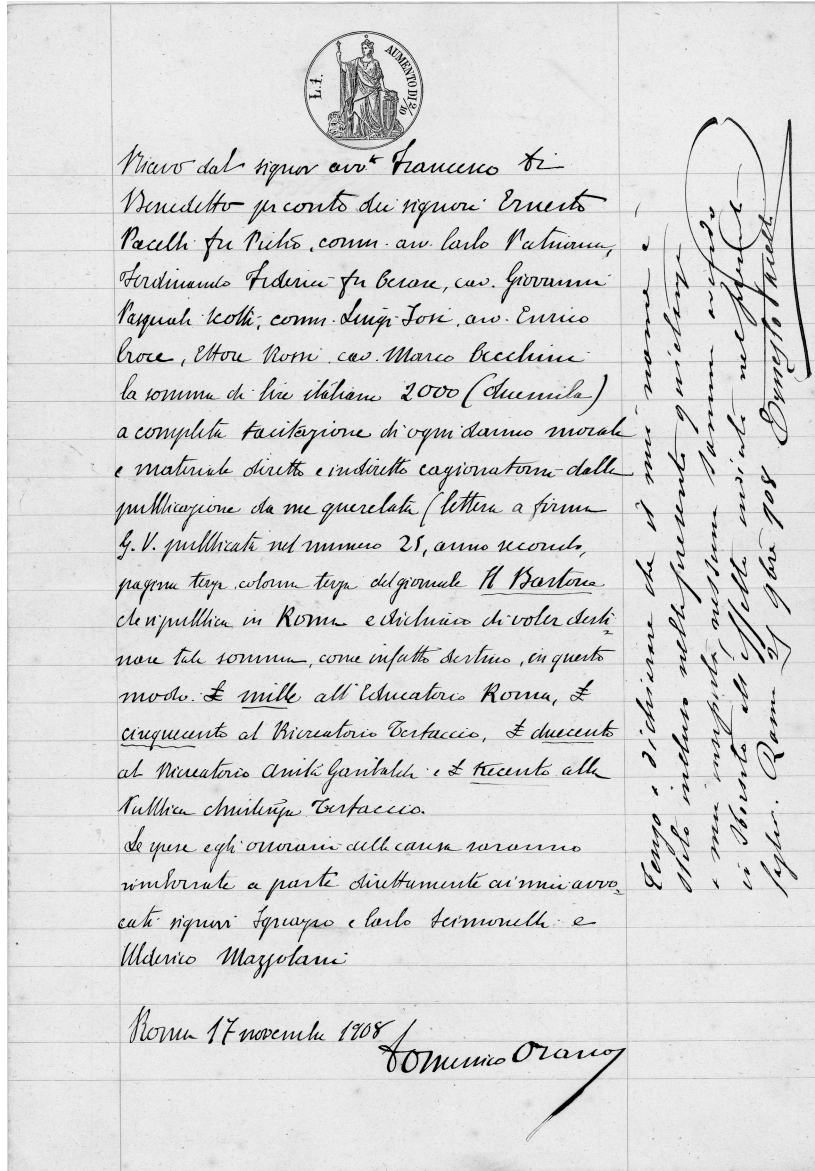 L. 1. AUMENTO DI 2/10
Ricevo dal signor avv.to Francesco Di
Benedetto per conto dei signori Ernesto
Pacelli fu Pietro, comm. avv. Carlo Patriarca,
Ferdinando Federici fu Cesare, cav. Giovanni
Pasquali Scotti, comm. Luigi Tosi, avv. Enrico
Croce, Ettore Rossi, cav. Marco Cecchini
la somma di lire italiane 2000 (duemila)
a completa tacitazione di ogni danno morale
e materiale diretto e indiretto cagionatomi dalla
pubblicazione da me querelata (lettera a firma
G. V. pubblicata nel numero 25, anno secondo,
pagina terza colonna terza del giornale Il Bastone
che si pubblica in Roma e dichiaro di voler desti-
nare tale somma, come infatto destino, in questo
modo: £ mille all'Educatorio Roma, £
cinquecento al Ricreatorio Testaccio, £ duecento
al Ricreatorio Anita Garibaldi e £ trecento alla
Pubblica Assistenza Testaccio.
Le spese e gli onorari della causa saranno
rimborsate a parte direttamente ai miei avvo-
cati signori Ignazio e Carlo Scimonelli e
Ulderico Mazzolani
Roma 17 novembre 1908
Domenico Orano
Tengo a dichiarare che il mio nome è
stato incluso nella presente quietanza
a mia insaputa, nessuna somma avendo
io sborsato all'effetto indicato nel presente
foglio. Roma 21 9bre 908 Ernesto Pacelli